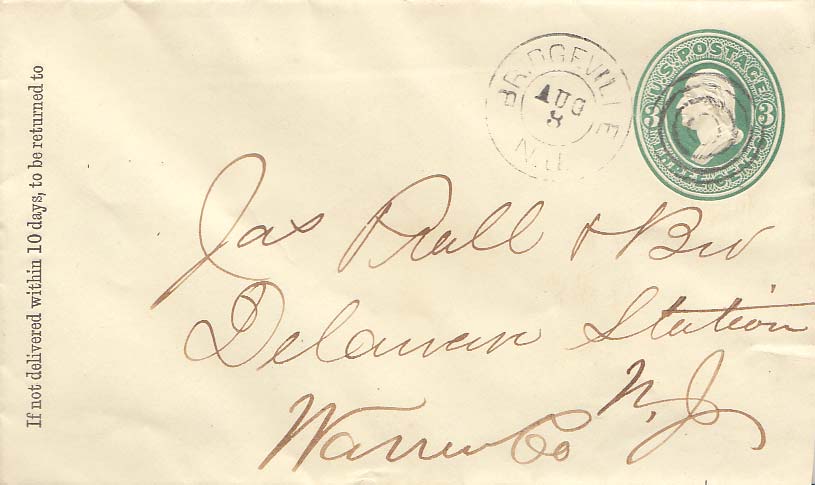 If not delivered within 10 days, to be returned to
BRIDGEVILLE
AUG
8
N.J.
U.S. POSTAGE
3 3
THREE CENTS
Jas Prall & Bro
Delaware Station
Warren Co N. J.